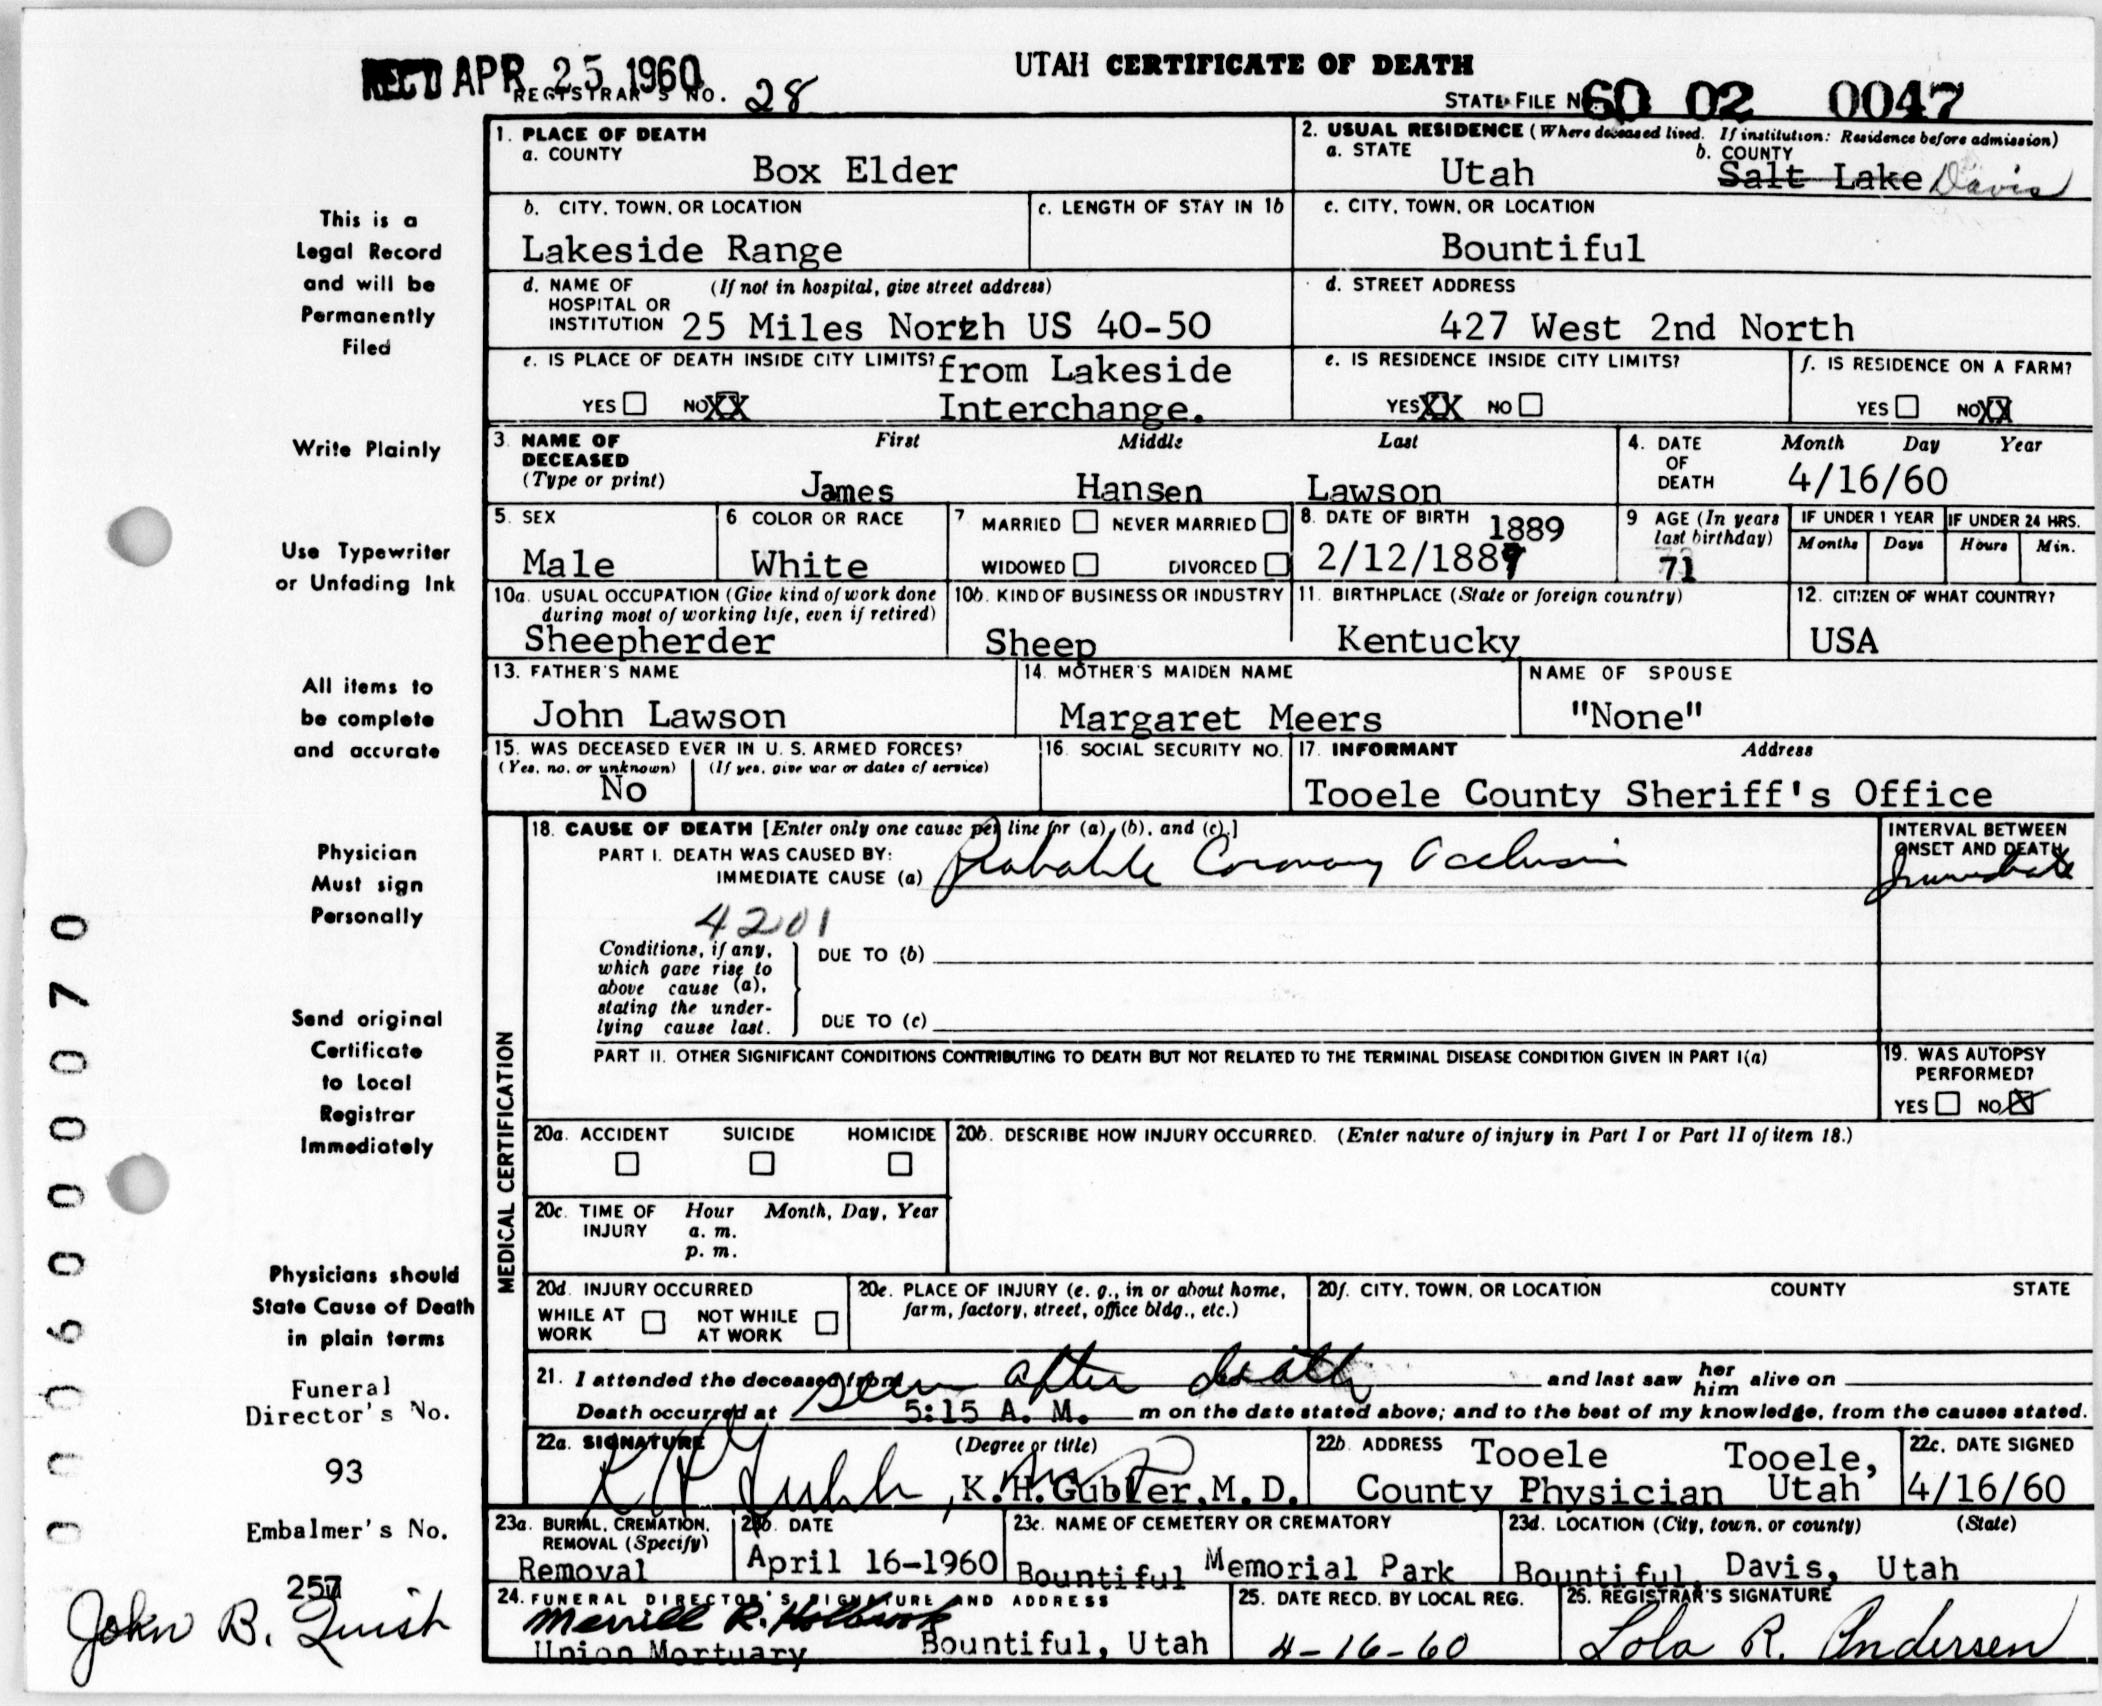 REC'D APR 25 1960
UTAH CERTIFICATE OF DEATH
REGISTRAR'S NO. 28
STATE FILE NO. 60 02 0047
1. PLACE OF DEATH
a. COUNTY
Box Elder
2. USUAL RESIDENCE (Where deceased lived. If institution: Residence before admission)
a. STATE
Utah
b. COUNTY
Salt Lake Davis
b. CITY, TOWN, OR LOCATION
Lakeside Range
c. LENGTH OF STAY IN 1b
c. CITY, TOWN, OR LOCATION
Bountiful
d. NAME OF HOSPITAL OR INSTITUTION
(If not in hospital, give street address)
25 Miles North US 40-50
from Lakeside
Interchange.
d. STREET ADDRESS
427 West 2nd North
e. IS PLACE OF DEATH INSIDE CITY LIMITS?
YES NO XX
e. IS RESIDENCE INSIDE CITY LIMITS?
YES XX NO
f. IS RESIDENCE ON A FARM?
YES NO XX
3. NAME OF DECEASED
(Type or print)
First Middle Last
James Hansen Lawson
4. DATE OF DEATH
Month Day Year
4/16/60
5. SEX
Male
6 COLOR OR RACE
White
7 MARRIED NEVER MARRIED
WIDOWED DIVORCED
8. DATE OF BIRTH
1889
2/12/188
9 AGE (In years last birthday)
71
IF UNDER 1 YEAR
Months Days
IF UNDER 24 HRS.
Hours Min.
10a. USUAL OCCUPATION (Give kind of work done during most of working life, even if retired)
Sheepherder
10b. KIND OF BUSINESS OR INDUSTRY
Sheep
11. BIRTHPLACE (State or foreign country)
Kentucky
12. CITIZEN OF WHAT COUNTRY?
USA
13. FATHER'S NAME
John Lawson
14. MOTHER'S MAIDEN NAME
Margaret Meers
NAME OF SPOUSE
"None"
15. WAS DECEASED EVER IN U. S. ARMED FORCES?
(Yes, no, or unknown) (If yes, give war or dates of service)
No
16. SOCIAL SECURITY NO.
17. INFORMANT Address
Tooele County Sheriff's Office
MEDICAL CERTIFICATION
18. CAUSE OF DEATH [Enter only one cause per line for (a), (b), and (c).]
PART I. DEATH WAS CAUSED BY:
IMMEDIATE CAUSE (a) Probable Coronary Occlusion
INTERVAL BETWEEN ONSET AND DEATH
Immediate
4201
Conditions, if any, which gave rise to above cause (a), stating the underlying cause last.
DUE TO (b)
DUE TO (c)
PART II. OTHER SIGNIFICANT CONDITIONS CONTRIBUTING TO DEATH BUT NOT RELATED TO THE TERMINAL DISEASE CONDITION GIVEN IN PART I(a)
19. WAS AUTOPSY PERFORMED?
YES NO X
20a. ACCIDENT SUICIDE HOMICIDE
20b. DESCRIBE HOW INJURY OCCURRED. (Enter nature of injury in Part I or Part II of item 18.)
20c. TIME OF INJURY
Hour Month, Day, Year
a. m.
p. m.
20d. INJURY OCCURRED
WHILE AT WORK NOT WHILE AT WORK
20e. PLACE OF INJURY (e. g., in or about home, farm, factory, street, office bldg., etc.)
20f. CITY, TOWN, OR LOCATION COUNTY STATE
21. I attended the deceased from Seen after death and last saw her him alive on
Death occurred at 5:15 A. M. m on the date stated above; and to the best of my knowledge, from the causes stated.
22a. SIGNATURE (Degree or title)
K H Gubler, K.H.Gubler,M.D.
22b. ADDRESS
Tooele Tooele,
County Physician Utah
22c. DATE SIGNED
4/16/60
23a. BURIAL, CREMATION, REMOVAL (Specify)
Removal
23b. DATE
April 16-1960
23c. NAME OF CEMETERY OR CREMATORY
Bountiful Memorial Park
23d. LOCATION (City, town, or county) (State)
Bountiful, Davis, Utah
24. FUNERAL DIRECTOR'S SIGNATURE AND ADDRESS
Merrill R. Holbrook
Union Mortuary Bountiful, Utah
25. DATE RECD. BY LOCAL REG.
4-16-60
26. REGISTRAR'S SIGNATURE
Lola R. Andersen
This is a
Legal Record
and will be
Permanently
Filed
Write Plainly
Use Typewriter
or Unfading Ink
All items to
be complete
and accurate
Physician
Must sign
Personally
Send original
Certificate
to Local
Registrar
Immediately
Physicians should
State Cause of Death
in plain terms
Funeral
Director's No.
93
Embalmer's No.
257
John B. Quish
0006000070